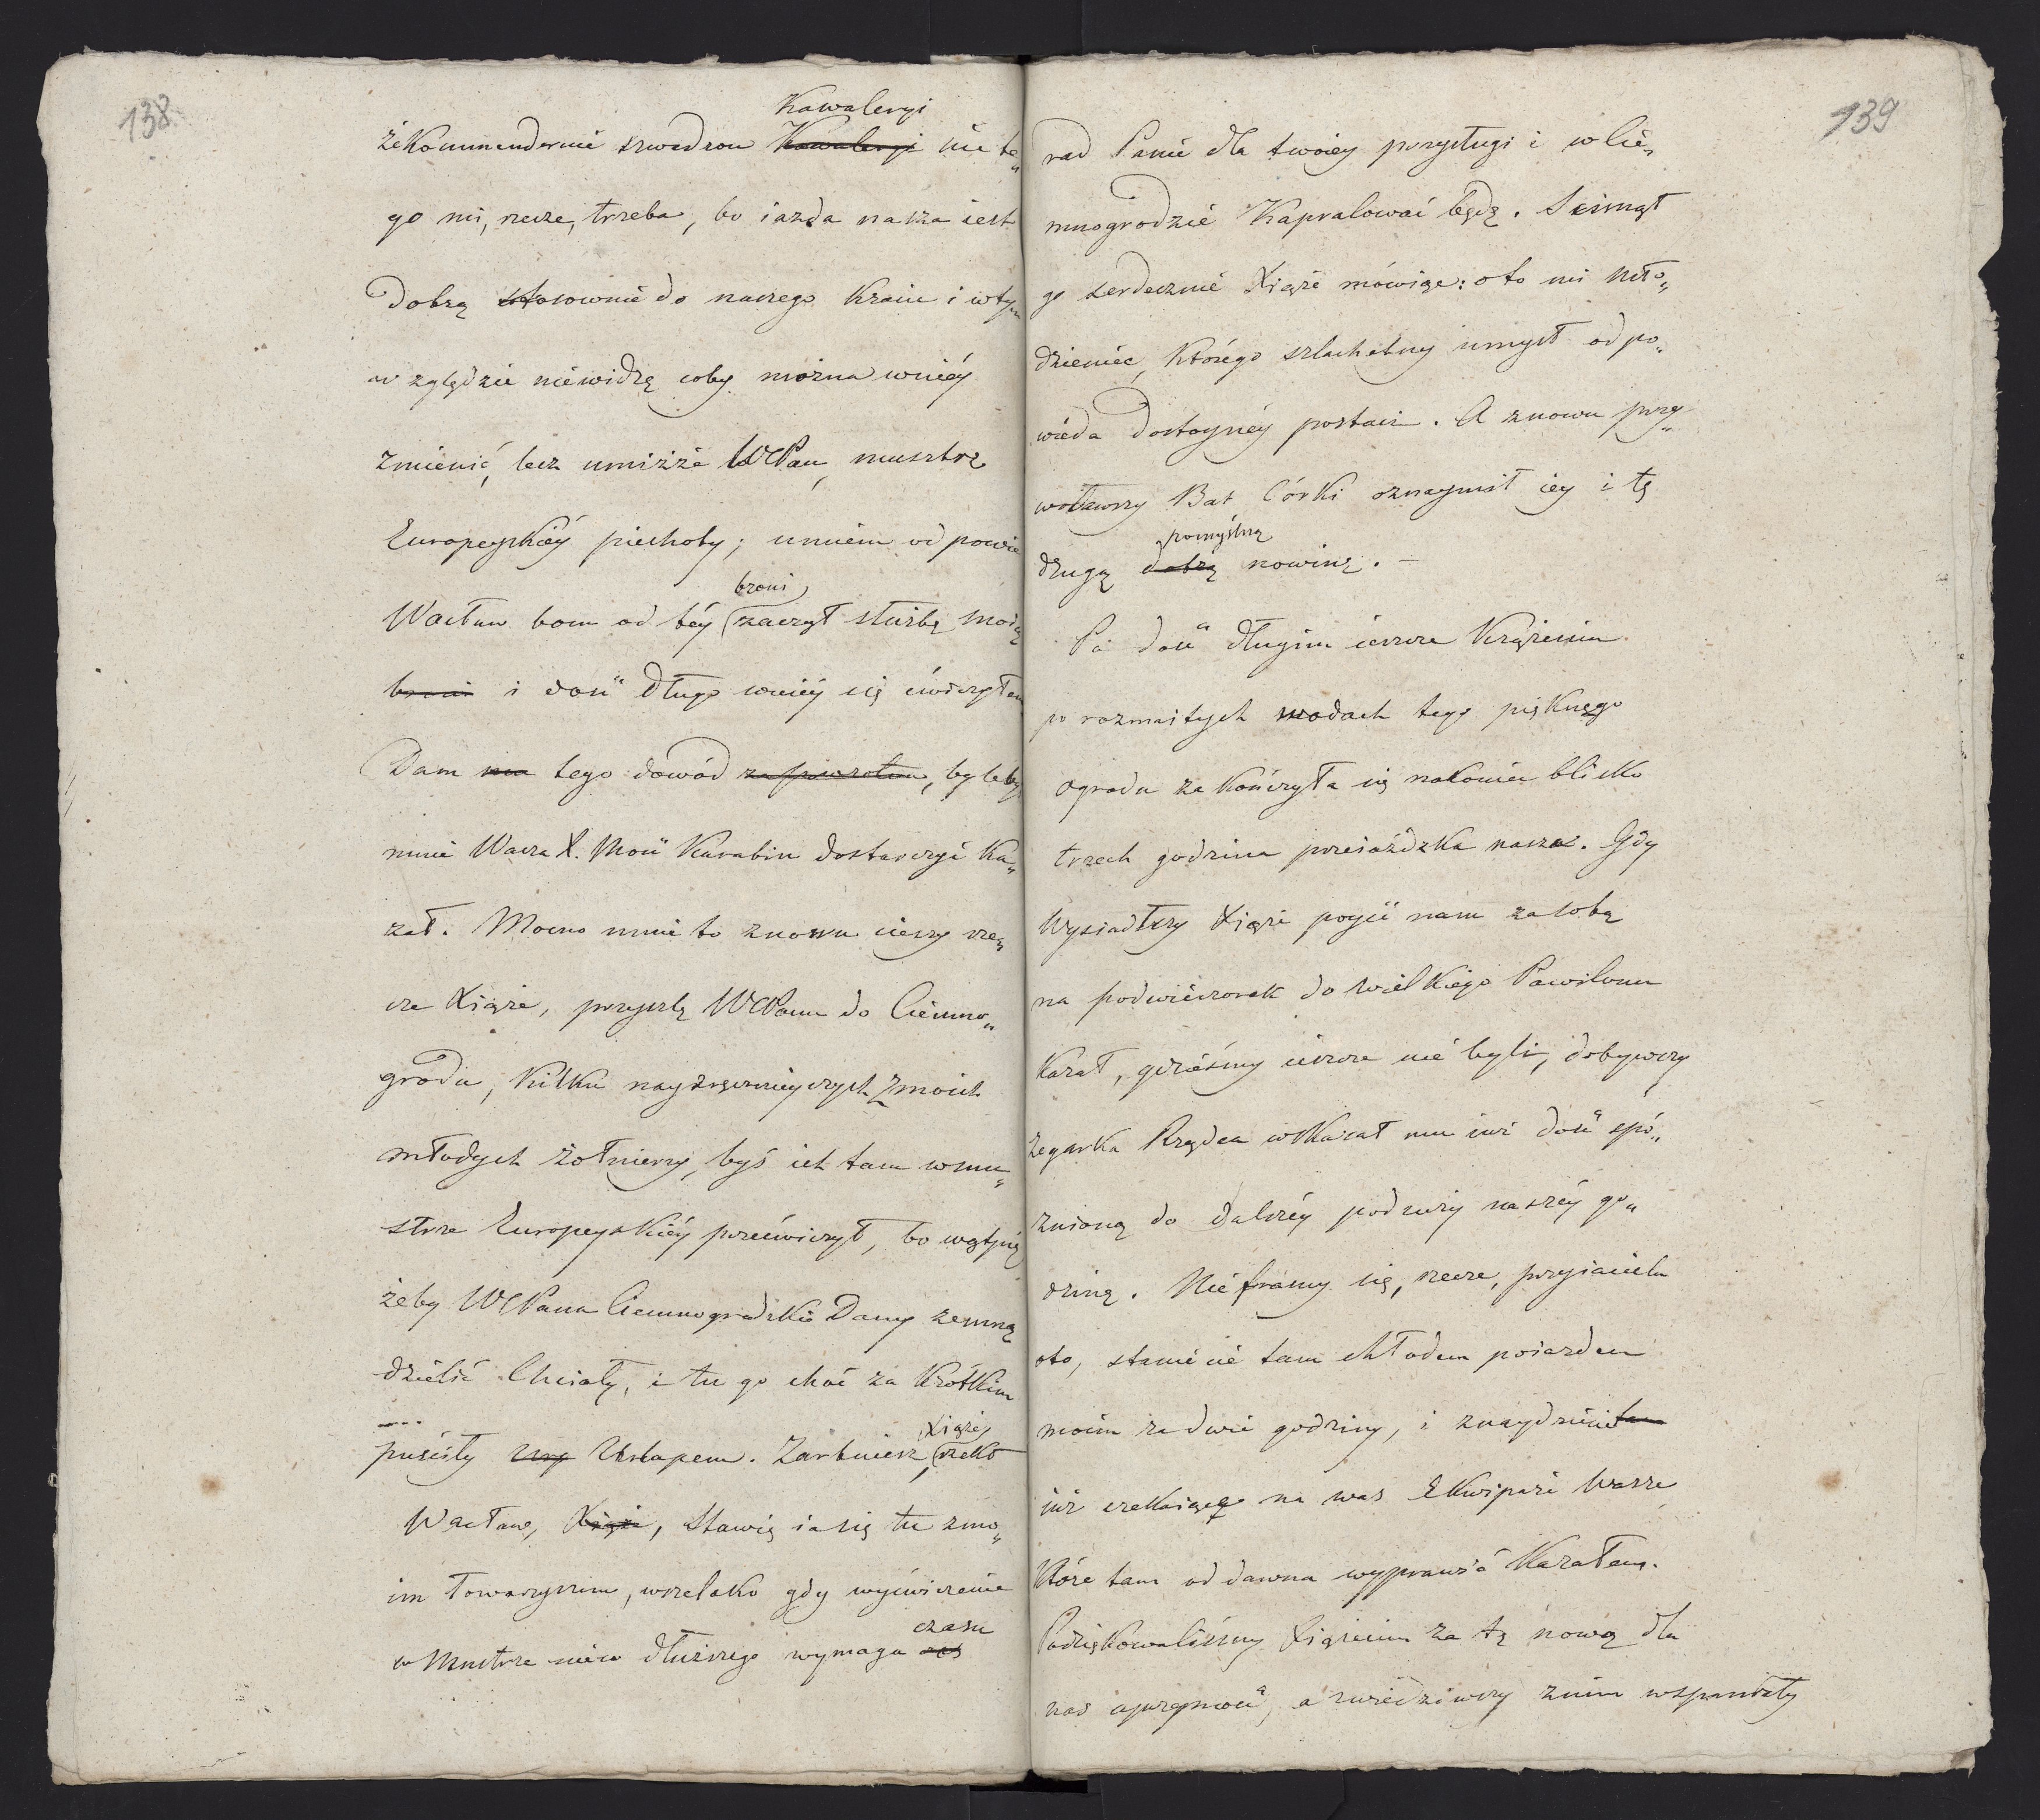 138
Kawaleryi
że kommenderuie szwadron Kawaleryi nie te„
go mi, rzecze, trzeba, bo iazda nasza iest
Dobrą stosownie do naszego Kraiu i wtym
względzie niewidzę coby można wniéy
zmienić, lecz umiszże WPan musztrę
Europeyskiéy piechoty; umiem odpowie
broni
Wacław bom od téy zaczął służbę moią
broni i dość długo wniéy się ćwiczyłem
Dam tego dowód za powrotem, byleby
mnie Wasza X. Mość Karabin dostarczyć ka„
zał. Mocno mnie to znowu cieszy rze„
cze Xiąże, przyszlę WPanu do Ciemno„
grodu, kilku nayzręcznieyszych zmoich
młodych żołnierzy, byś ich tam wmu„
strze Europeyskiéy przećwiczył, bo wątpię
żeby WPana Ciemnogrodzkie Damy zemną
dzielić Chciały, i tu go choć za krótkim
Xiąże
puściły Urlopem. Żartuiesz, rzekł
Wacław, Xiąże, stawię ia się tu zmo„
im Towarzyszem, wszelako gdy wyćwiczenie
czasu
w Mustrze nieco dłuższego wymaga czas
139
rad Panie dla twoiey przysługi i w Cie„
mnogrodzie Kapralować będę. Scisnął
go serdecznie Xiąże mówiąc: oto mi Mło„
dzieniec, którego szlachetny umysł odpo„
wieda Dostoynéy postaci. A znowu przy„
woławszy Bat Córki oznaymił iey i tę
pomyślną
drugą dobrą nowinę. –
Po dość długim ieszcze Krążeniu
po rozmaitych wodach tego pięknego
ogrodu zakończyła się nakoniec blisko
trzech godzinna przeiażdzka nasza. Gdy
Wysiadłszy Xiąże poyść nam za sobą
na podwieczorek do wielkiego Pawilonu
Kazał, gdzieśmy ieszcze nie byli, dobywszy
zegarka Rządca wskazał mu iuż dość spó„
znioną do dalszéy podróży naszéy go„
dzinę. Nie framuy się, rzecze, przyiacielu
oto, staniecie tam chłodem poiazdem
moim za dwie godziny, i znaydziecie tam
iuż czekaiące na was Ekwipaże Wasze
Które tam od dawna wyprawić Kazałem.
Podziękowaliśmy Xiążeciu za tę nową dla
nas uprzeymość, a zwiedziwszy znim wspaniały